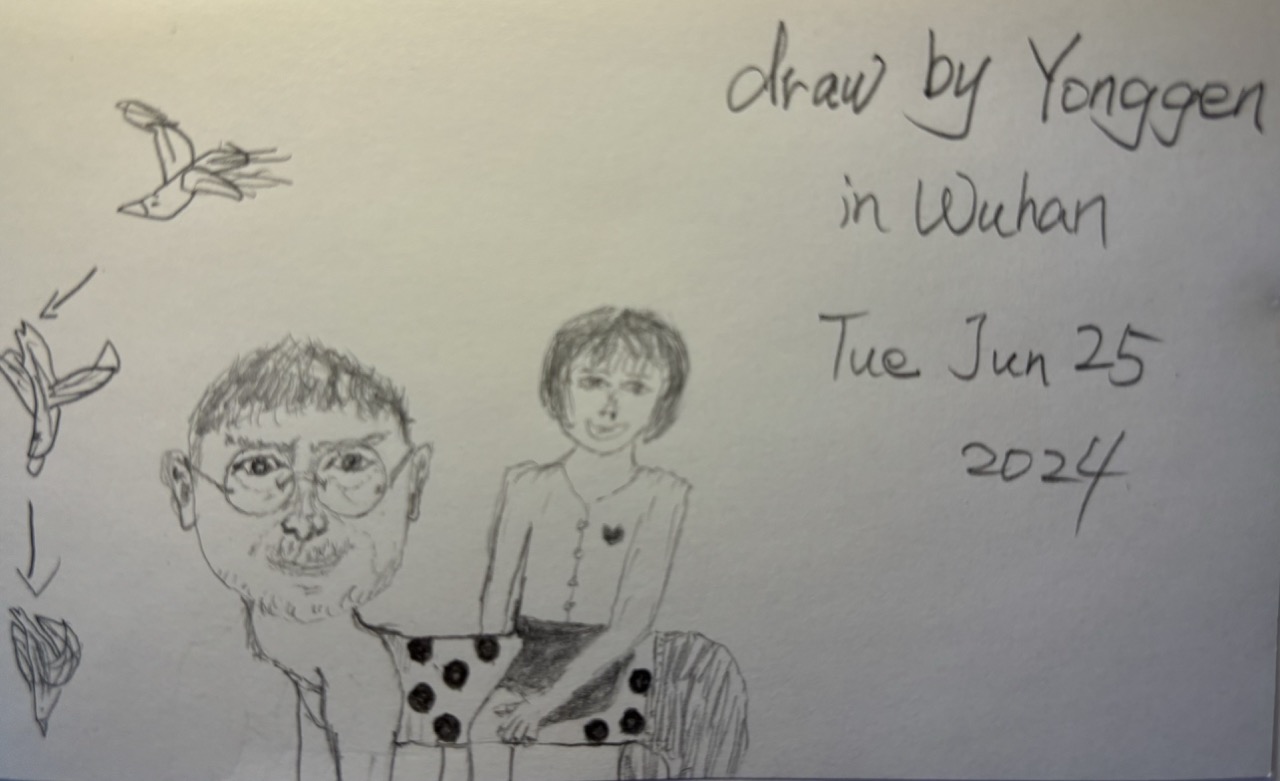 draw by Yonggen
in Wuhan
Tue Jun 25
2024